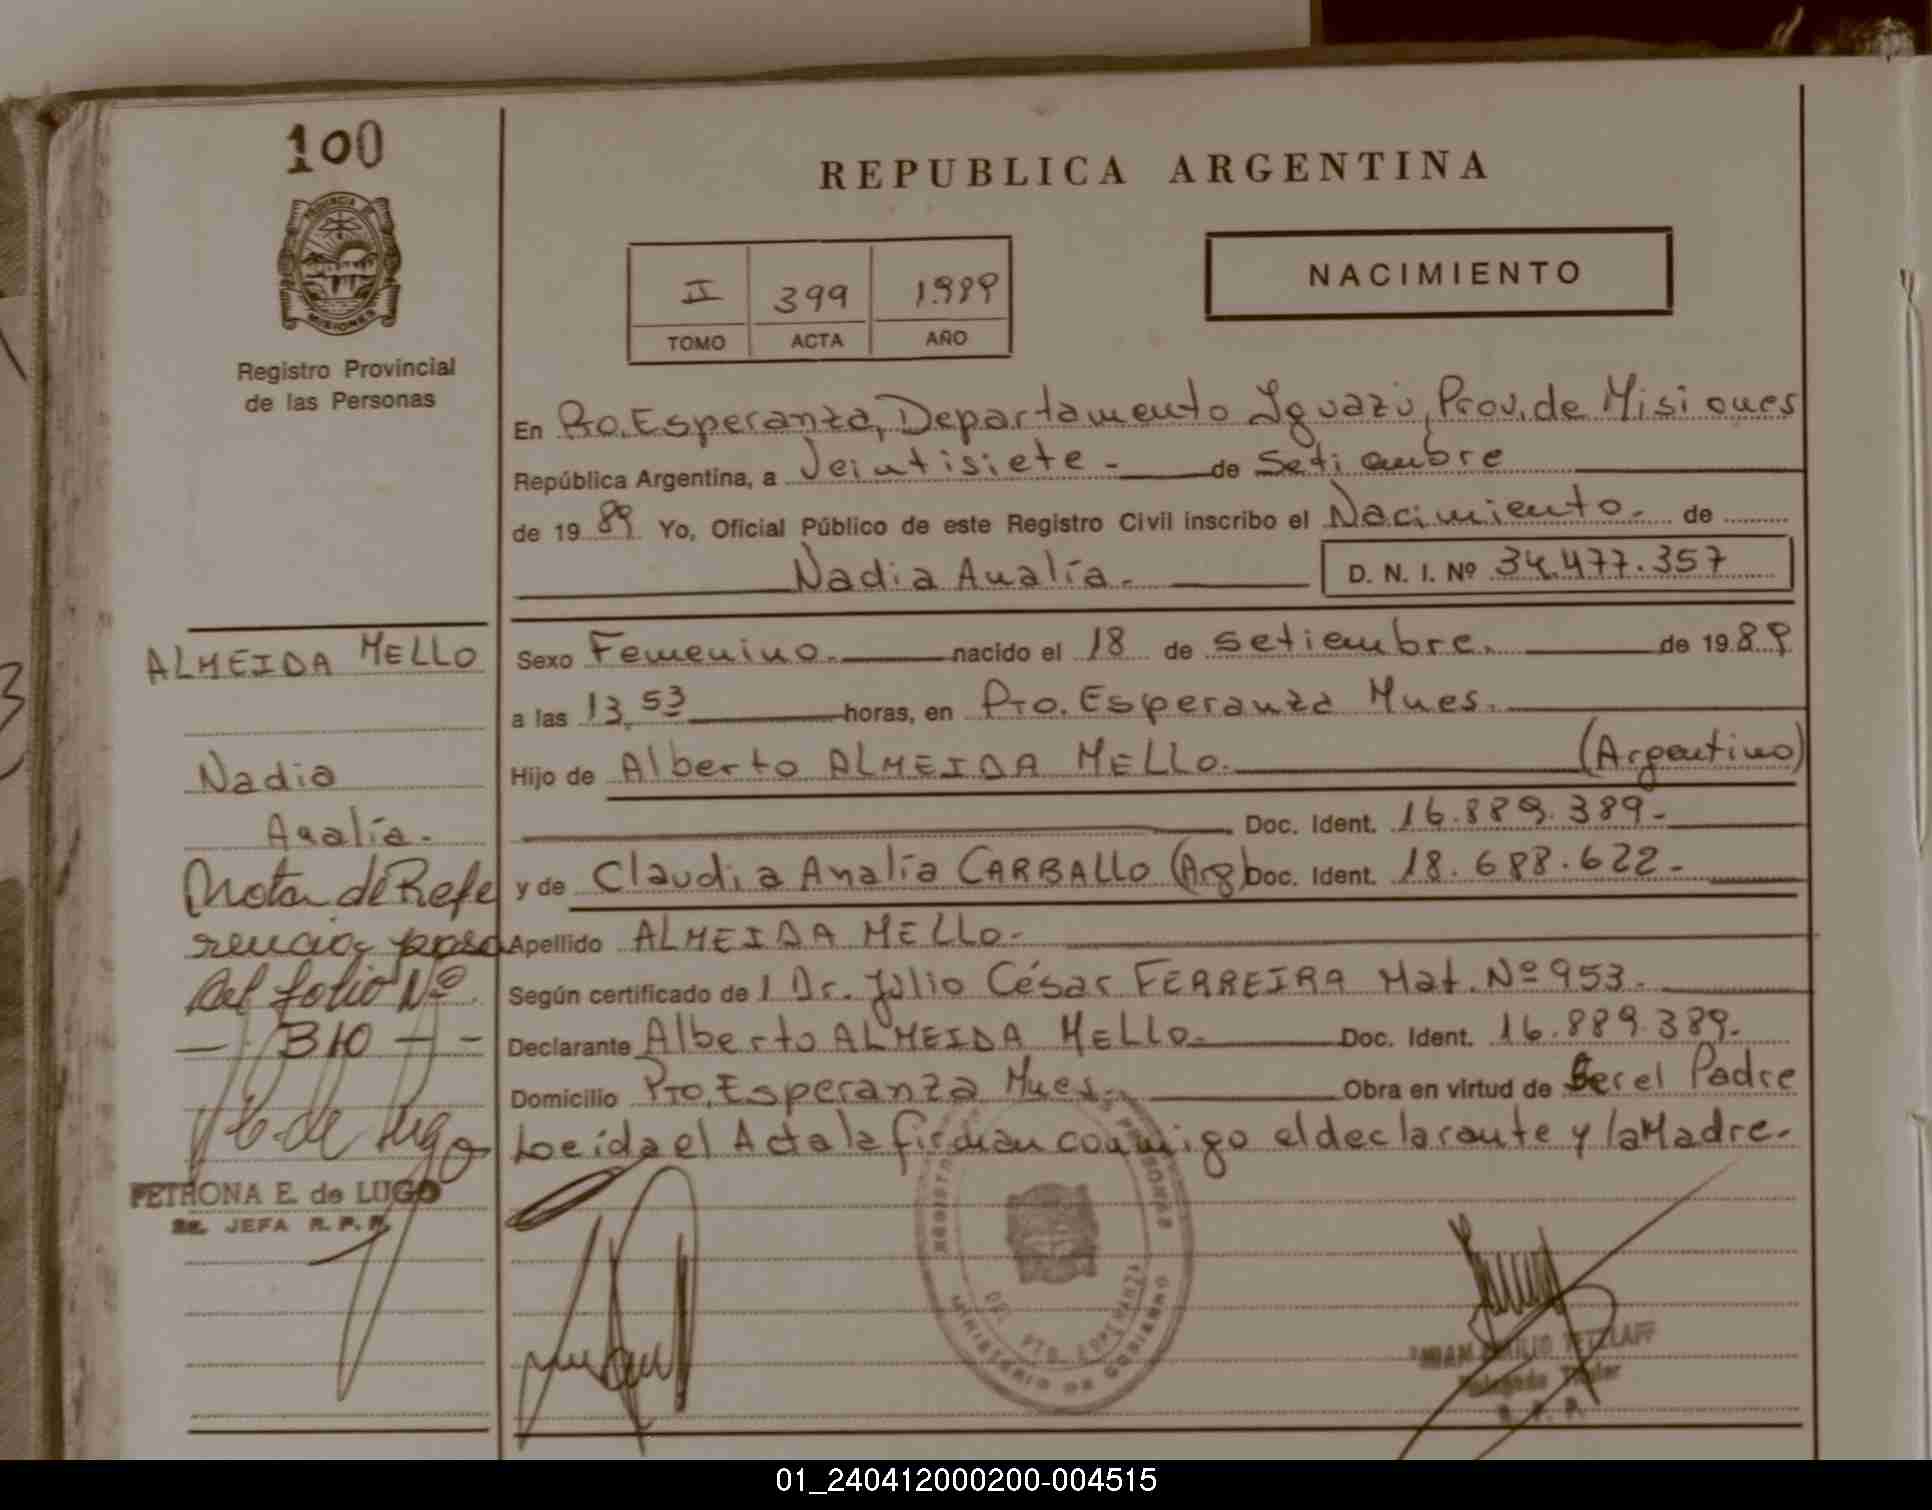 100
PROVINCIA DE
MISIONES
Registro Provincial
de las Personas
REPUBLICA ARGENTINA
II 399 1989
TOMO ACTA AÑO
NACIMIENTO
En Pto. Esperanza, Departamento Iguazú, Prov. de Misiones
República Argentina, a Veintisiete - de Setiembre
de 1989 Yo, Oficial Público de este Registro Civil inscribo el Nacimiento. de
Nadia Analía.
D. N. I. Nº 34.477.357
ALMEIDA MELLO
Nadia
Analía.
Nota de Refe
rencia, pasa
al folio Nº
- 310 - -
P E de Lugo
PETRONA E. de LUGO
JEFA R. P. P.
Sexo Femenino. nacido el 18 de setiembre. de 1989
a las 13,53 horas, en Pto. Esperanza Mnes.
Hijo de Alberto ALMEIDA MELLO. (Argentino)
Doc. Ident. 16.889.389.-
y de Claudia Analía CARBALLO (Arg) Doc. Ident. 18.688.622.-
Apellido ALMEIDA MELLO.-
Según certificado del Dr. Julio César FERREIRA Mat. Nº 953.
Declarante Alberto ALMEIDA MELLO. Doc. Ident. 16.889.389.
Domicilio Pto. Esperanza Mnes. Obra en virtud de Ser el Padre
Leída el Acta la firman conmigo el declarante y la Madre.
PERSONAS
PTO. ESPERANZA
MINISTERIO DE GOBIERNO
TETZLAFF
Delegado Titular
R. P. P.
01_240412000200-004515